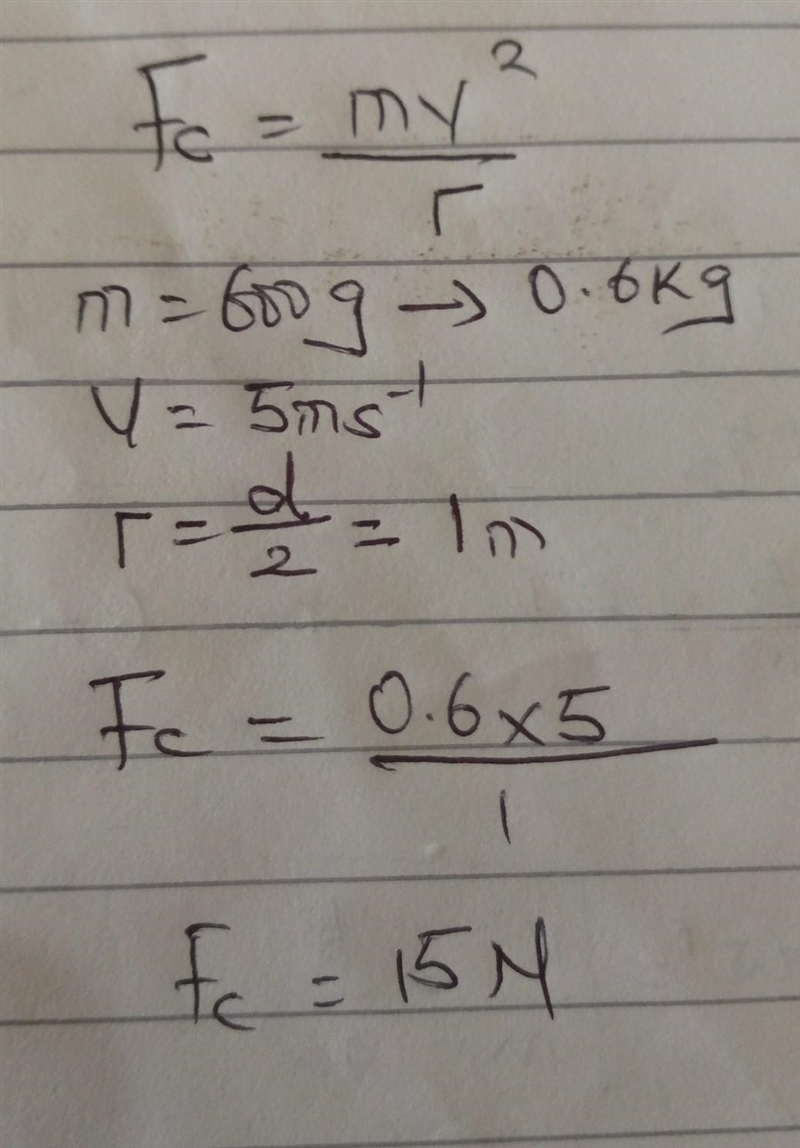 Fc = mv²/r
m = 600g → 0.6Kg
v = 5ms⁻¹
r = d/2 = 1m
Fc = 0.6×5/1
Fc = 15N